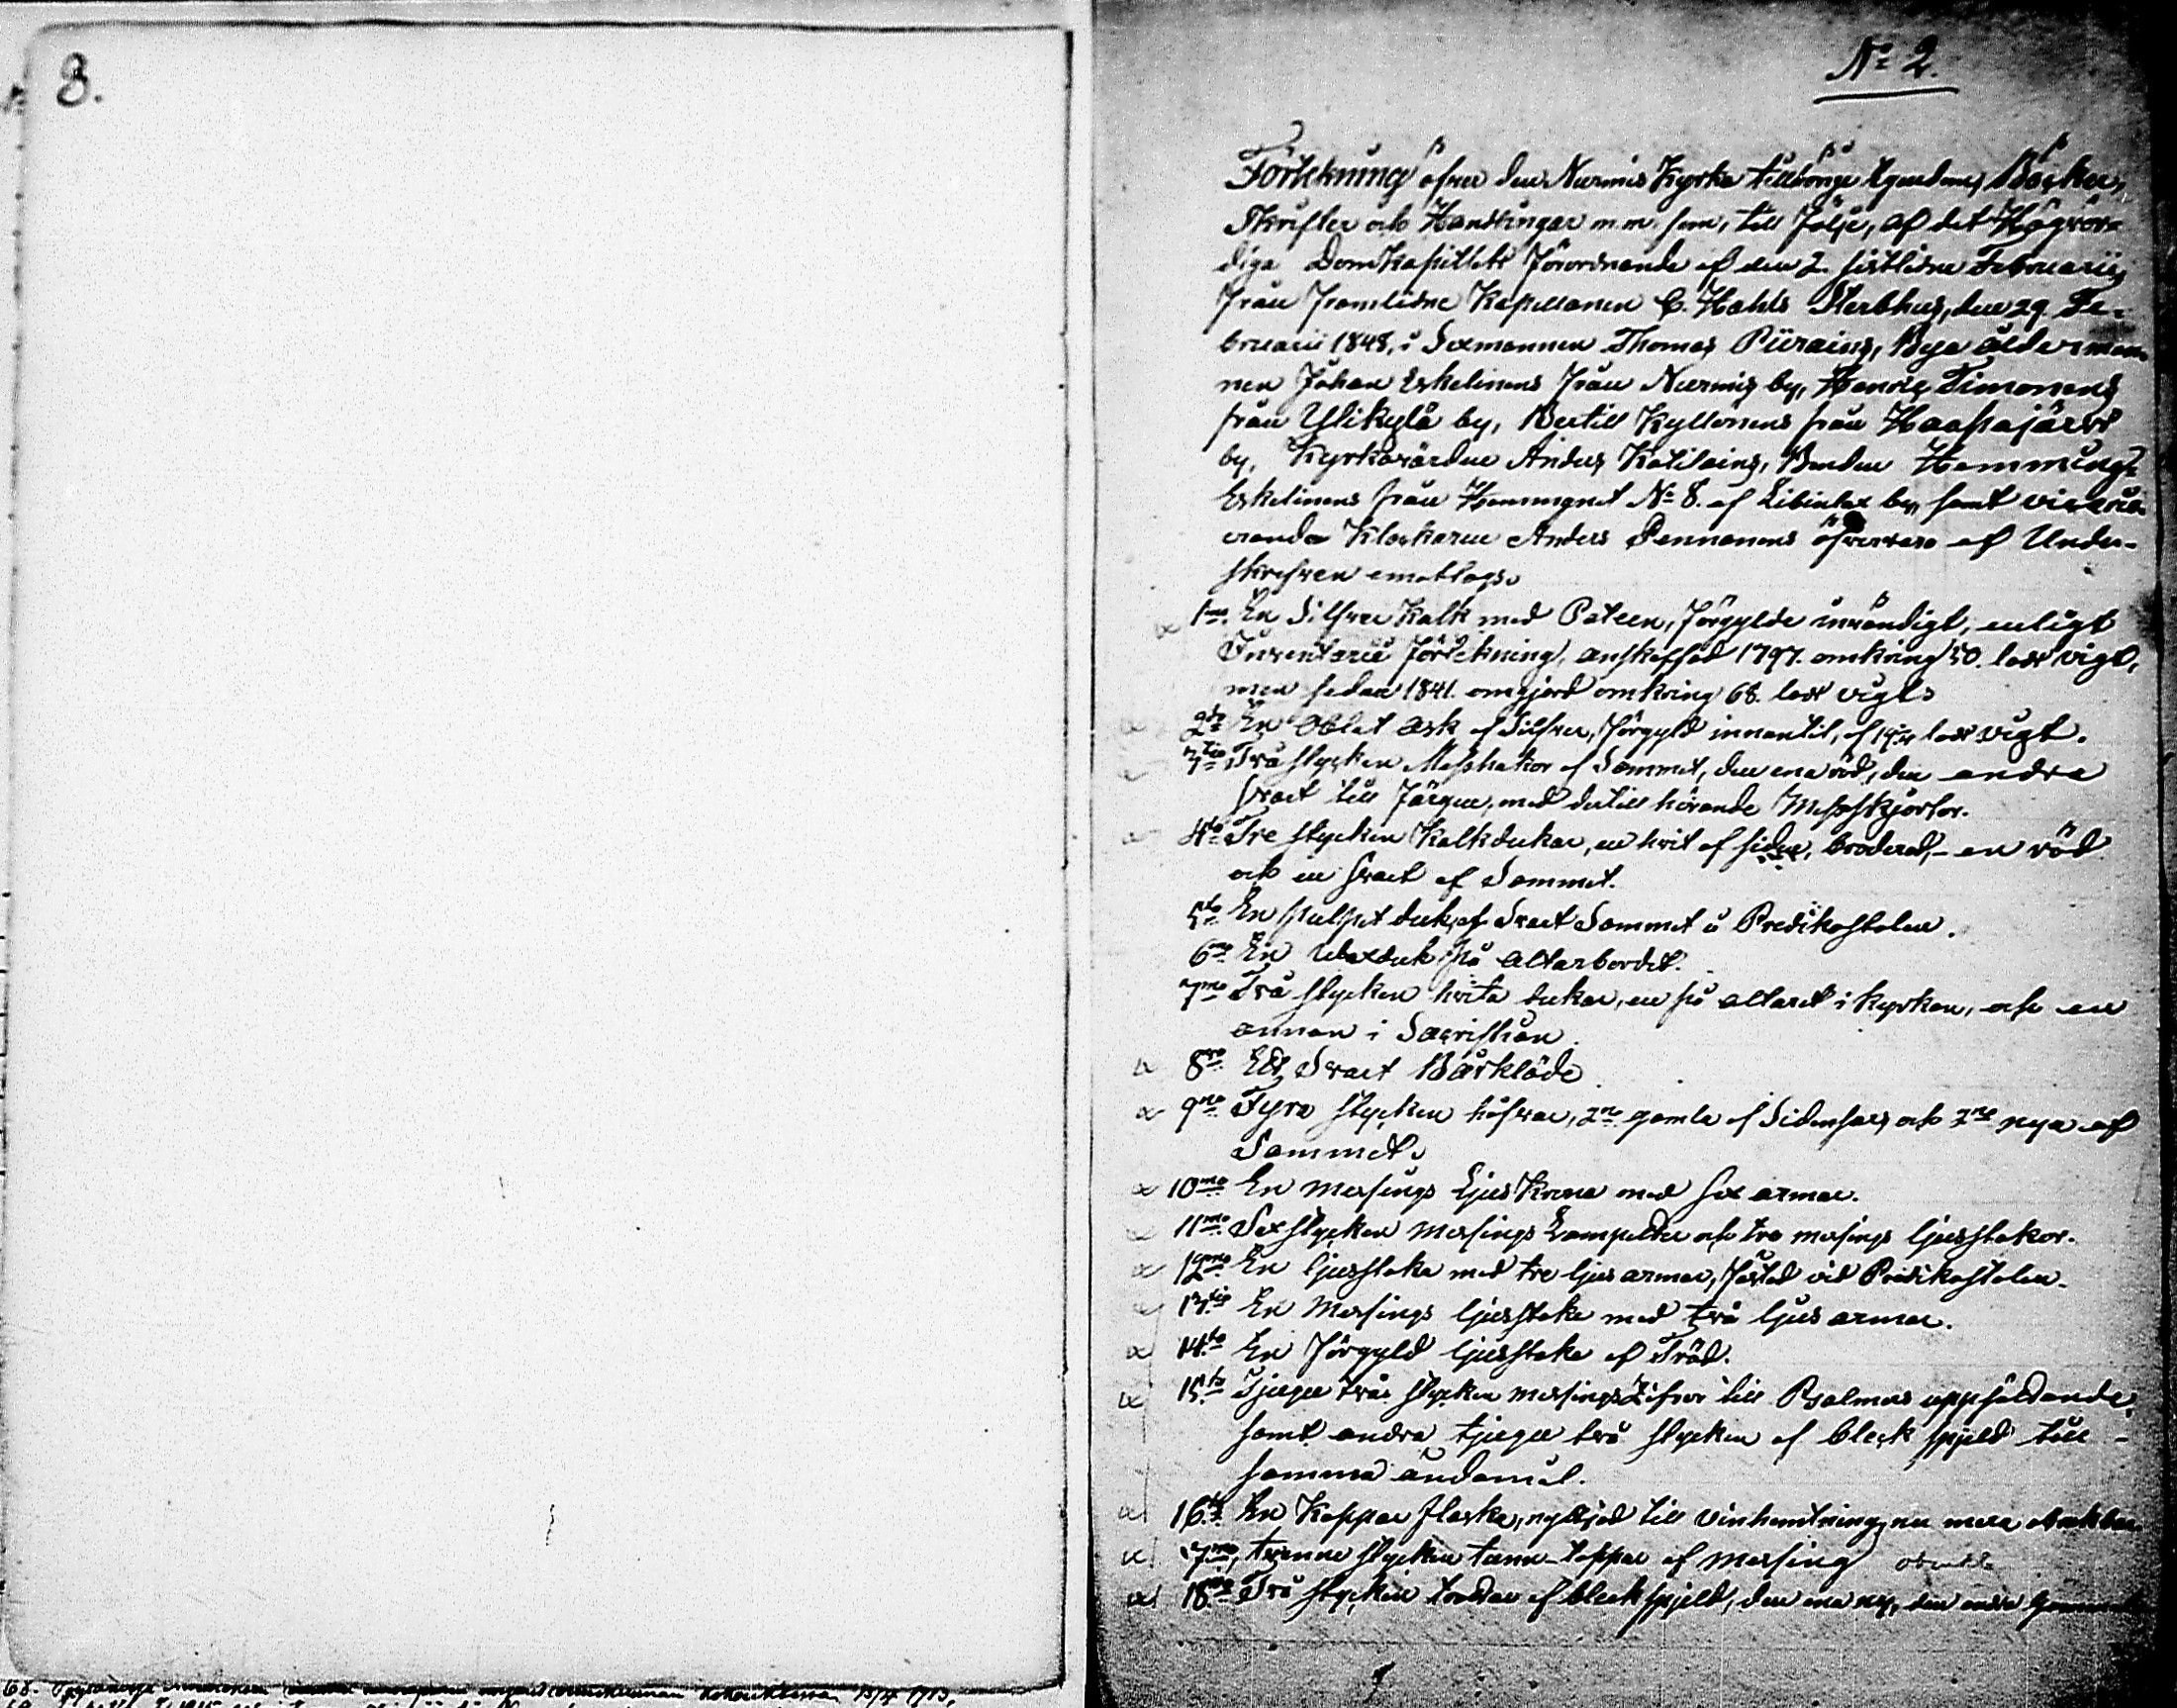 8.
No 2.
Förtekning öfver den Nurmis Kyrka tillhörige Egendom, Böcker,
Skrifter och Handlingar m.m. som, till följe, af det Högvör-
diga DomKapitlets förordnande af den 2. sistledne Februarii,
från framlidne Kapellanen C. Hahls Sterbhus, den 29. Fe-
bruarii 1848, i Sexmannen Thomas Piirains, Bya åldermän-
nen Johan Eskelinens från Nurmis by, Henric Timonens
från Ylikylä by, Bertill Kyllönens från Haapajärvi
by, Kyrkovärden Anders Katilains, Bonden Hemming
Eskelinens från Hemmanet No 8. af by, samt vicarie-
rande Klockaren Anders Pennanens öfvervaro af Under-
skrefven emottogs.
1mo. En Silfver Kalk med Pateen, förgylde invändigt, enligt
Inventarii förtekning, anskaffad 1797. omkring 50. lod vigt,
men sedan 1841. omgjord omkring 68. lod vigt.
2do En Oblat Ask af Silfver, förgyld innantil, af lod vigt.
3tio Två stycken Messhakor af Sammet, den ena röd, den andra
svart till färgen, med dertill hörande Messskjortor.
4to Tre stycken Kalkdukar, en hvit af siden, broderad, - en röd
och en svart af Sammet.
5to En pulpet duk af Svart Sammet å Predikostolen.
6to En Vaxduk på altarbordet.
7mo Två stycken hvita dukar, en på altaret i kyrkan, och en
annan i Sacristian.
8vo Ett Svart Bårkläde
9no Fyra stycken håfvar, 2ne gamla af Sidensars och 2ne nya af
Sammet.
10mo En messings Ljus Krona med sex armar.
11mo Sex stycken messings Lampetter och tre messings ljusstakor.
12mo En ljusstake med tre ljus armar, fästad vid Predikostolen.
13tio En Messings ljusstake med två ljus armar.
14to En förgyld ljusstake af Träd.
15to Tjugu två stycken messings Ziffror till Psalmers uppsättande,
samt andra tjugu två stycken af bleck spjeld till
samma ändamål.
16to En Koppar flaska, nyttjad till vinhemtning, nu mera obrukbar.
17mo, trenne stycken tenn-toppar af messing
18vo Två stycken trattar af bleckspjeld, den ena ny, den andra gammal